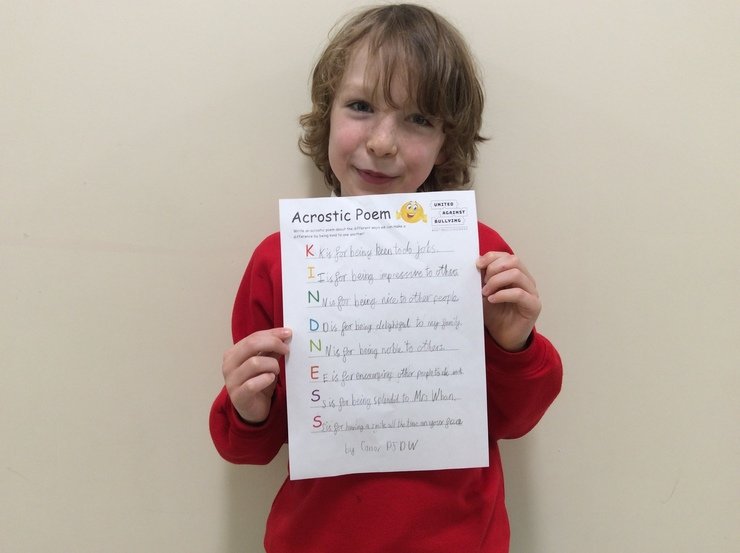 Acrostic Poem
UNITED
AGAINST
BULLYING
Write an acrostic poem about the different ways we can make a
difference by being kind to one another!
K K is for being keen to do jobs.
I I is for being impressive to others.
N N is for being nice to other people.
D D is for being delightful to my family.
N N is for being noble to others.
E E is for encouraging other people to do
S S is for being splendid to Mrs
S S is for having a smile all the time on your face
by P5 D.W